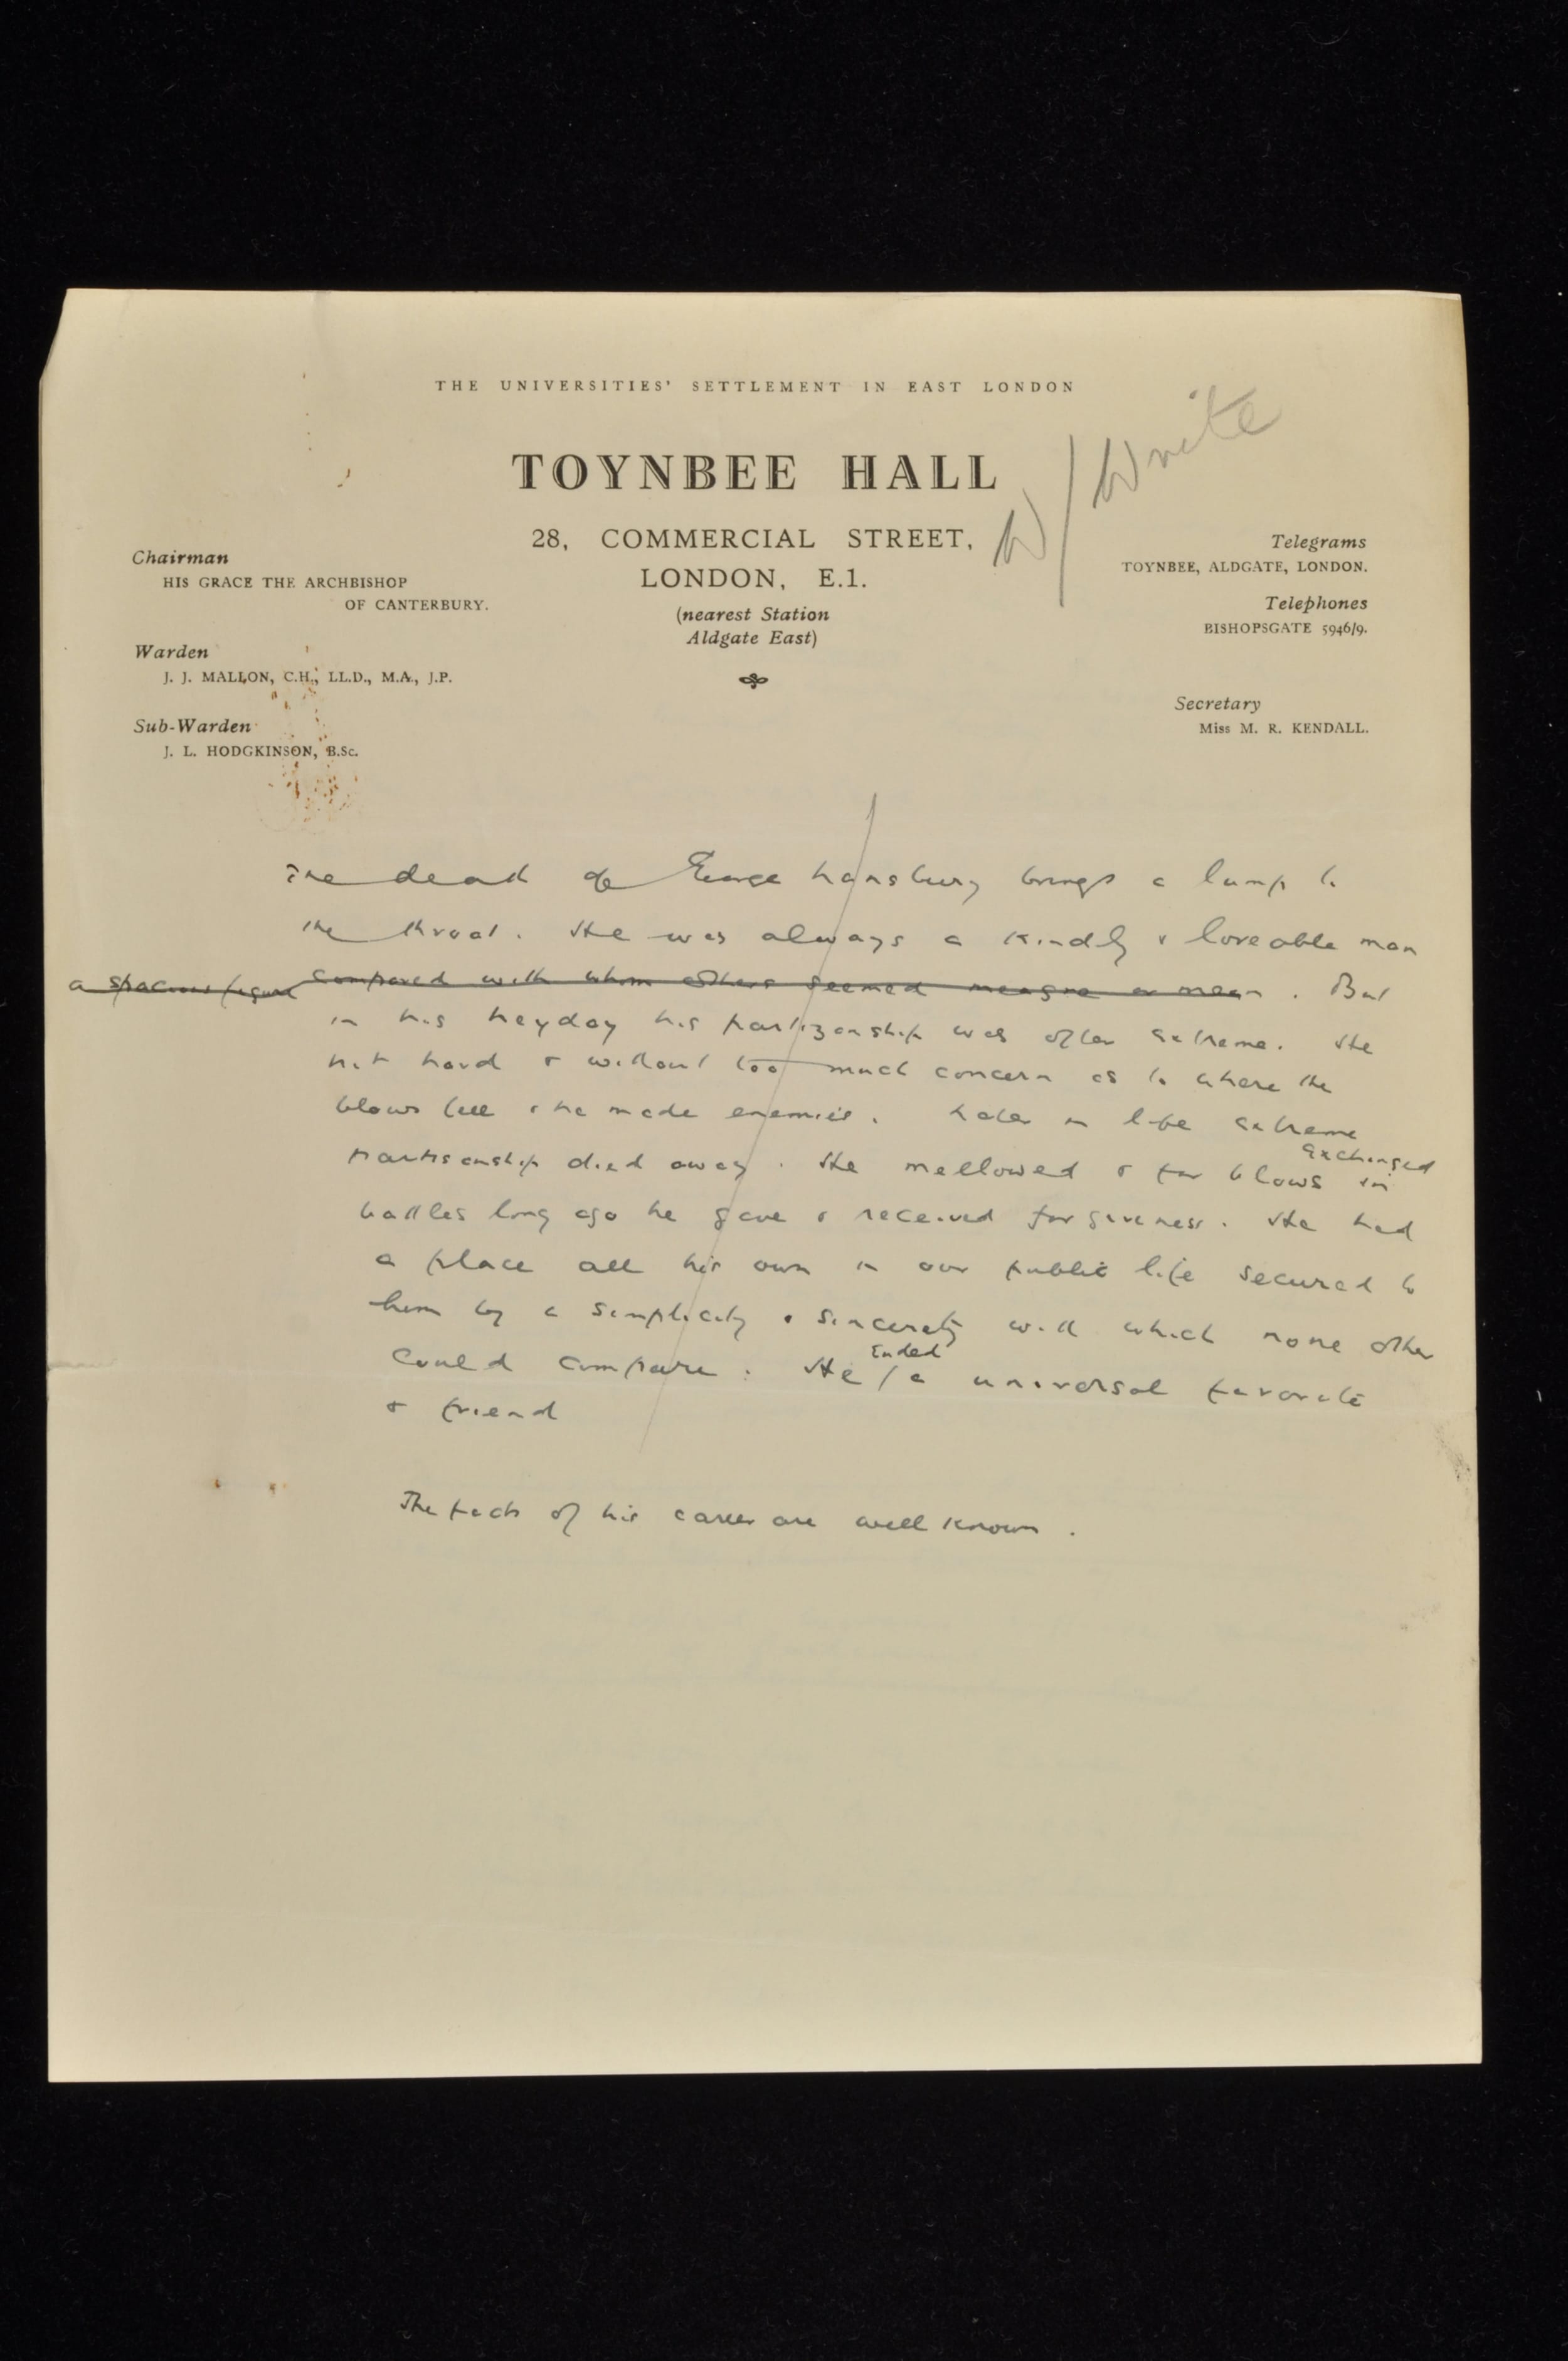 THE UNIVERSITIES' SETTLEMENT IN EAST LONDON
TOYNBEE HALL
28, COMMERCIAL STREET,
LONDON, E.1.
(nearest Station
Aldgate East)
W/ Write
Chairman
HIS GRACE THE ARCHBISHOP
OF CANTERBURY.
Warden
J. J. MALLON, C.H., LL.D., M.A., J.P.
Sub-Warden
J. L. HODGKINSON, B.Sc.
Telegrams
TOYNBEE, ALDGATE, LONDON.
Telephones
BISHOPSGATE 5946/9.
Secretary
Miss M. R. KENDALL.
The death of George Lansbury brings a lump to
the throat. He was always a kindly & loveable man
a spacious figure compared with whom others seemed meagre or mean. But
in his heyday his partizanship was often extreme. He
hit hard & without too much concern as to where the
blows fell & he made enemies. Later in life extreme
partisanship died away. He mellowed & for blows exchanged in
battles long ago he gave & received forgiveness. He had
a place all his own in our public life secured to
him by a simplicity & sincerity with which none other
could compare. He / Ended a universal favorite
& friend
The facts of his career are well known.